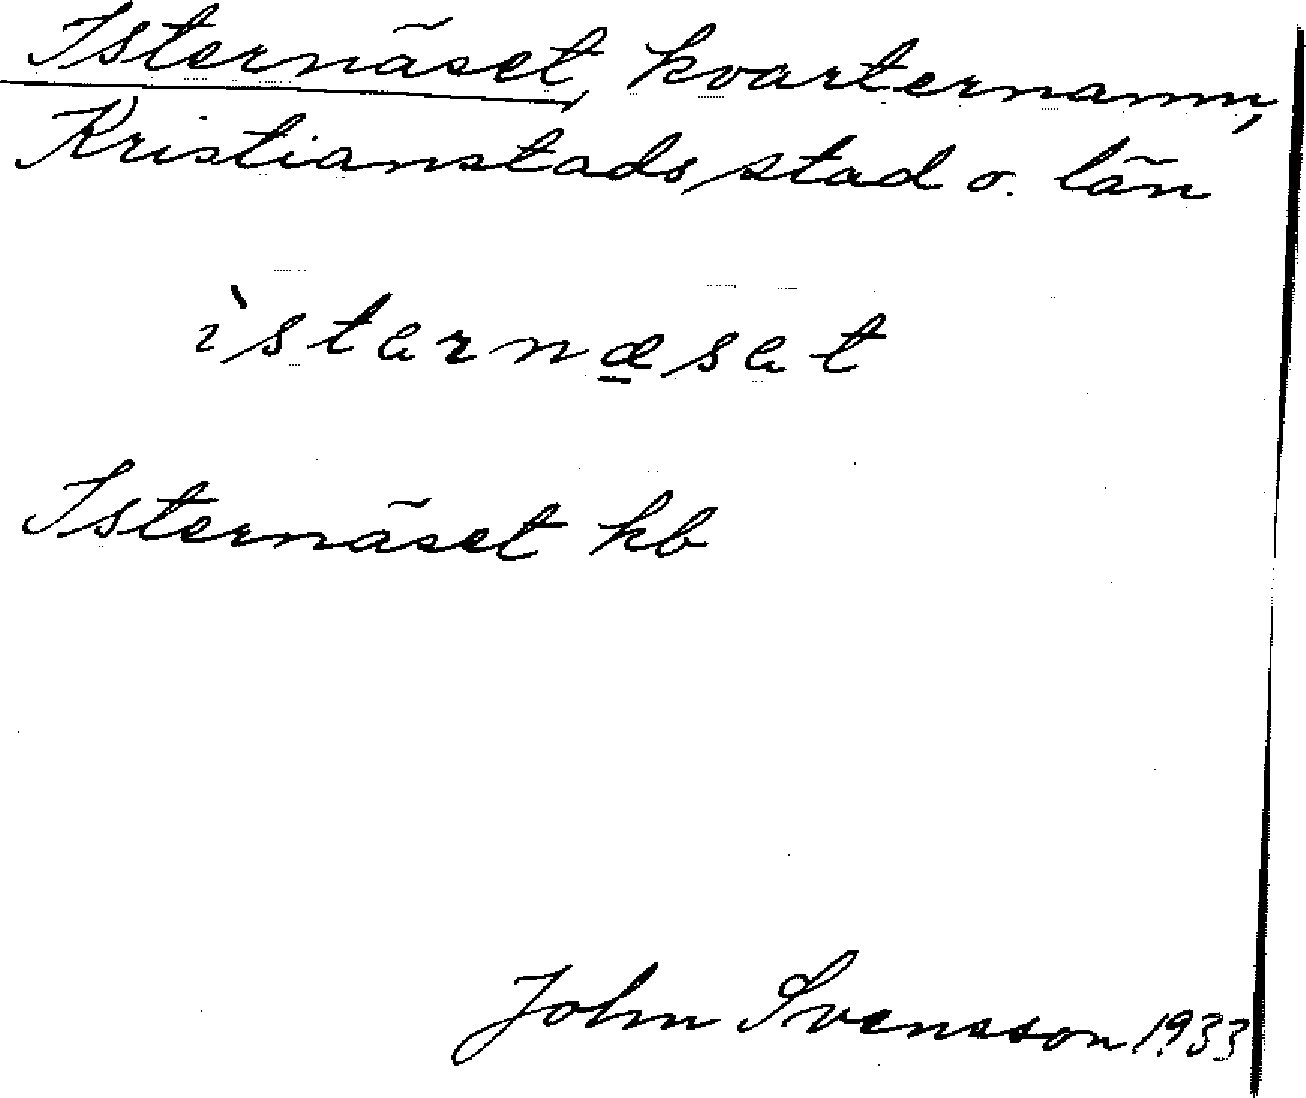 Isternäset, kvarternamn,
Kristianstads stad o. län
ìstərnæsət
Isternäset kb
John Svensson 1933